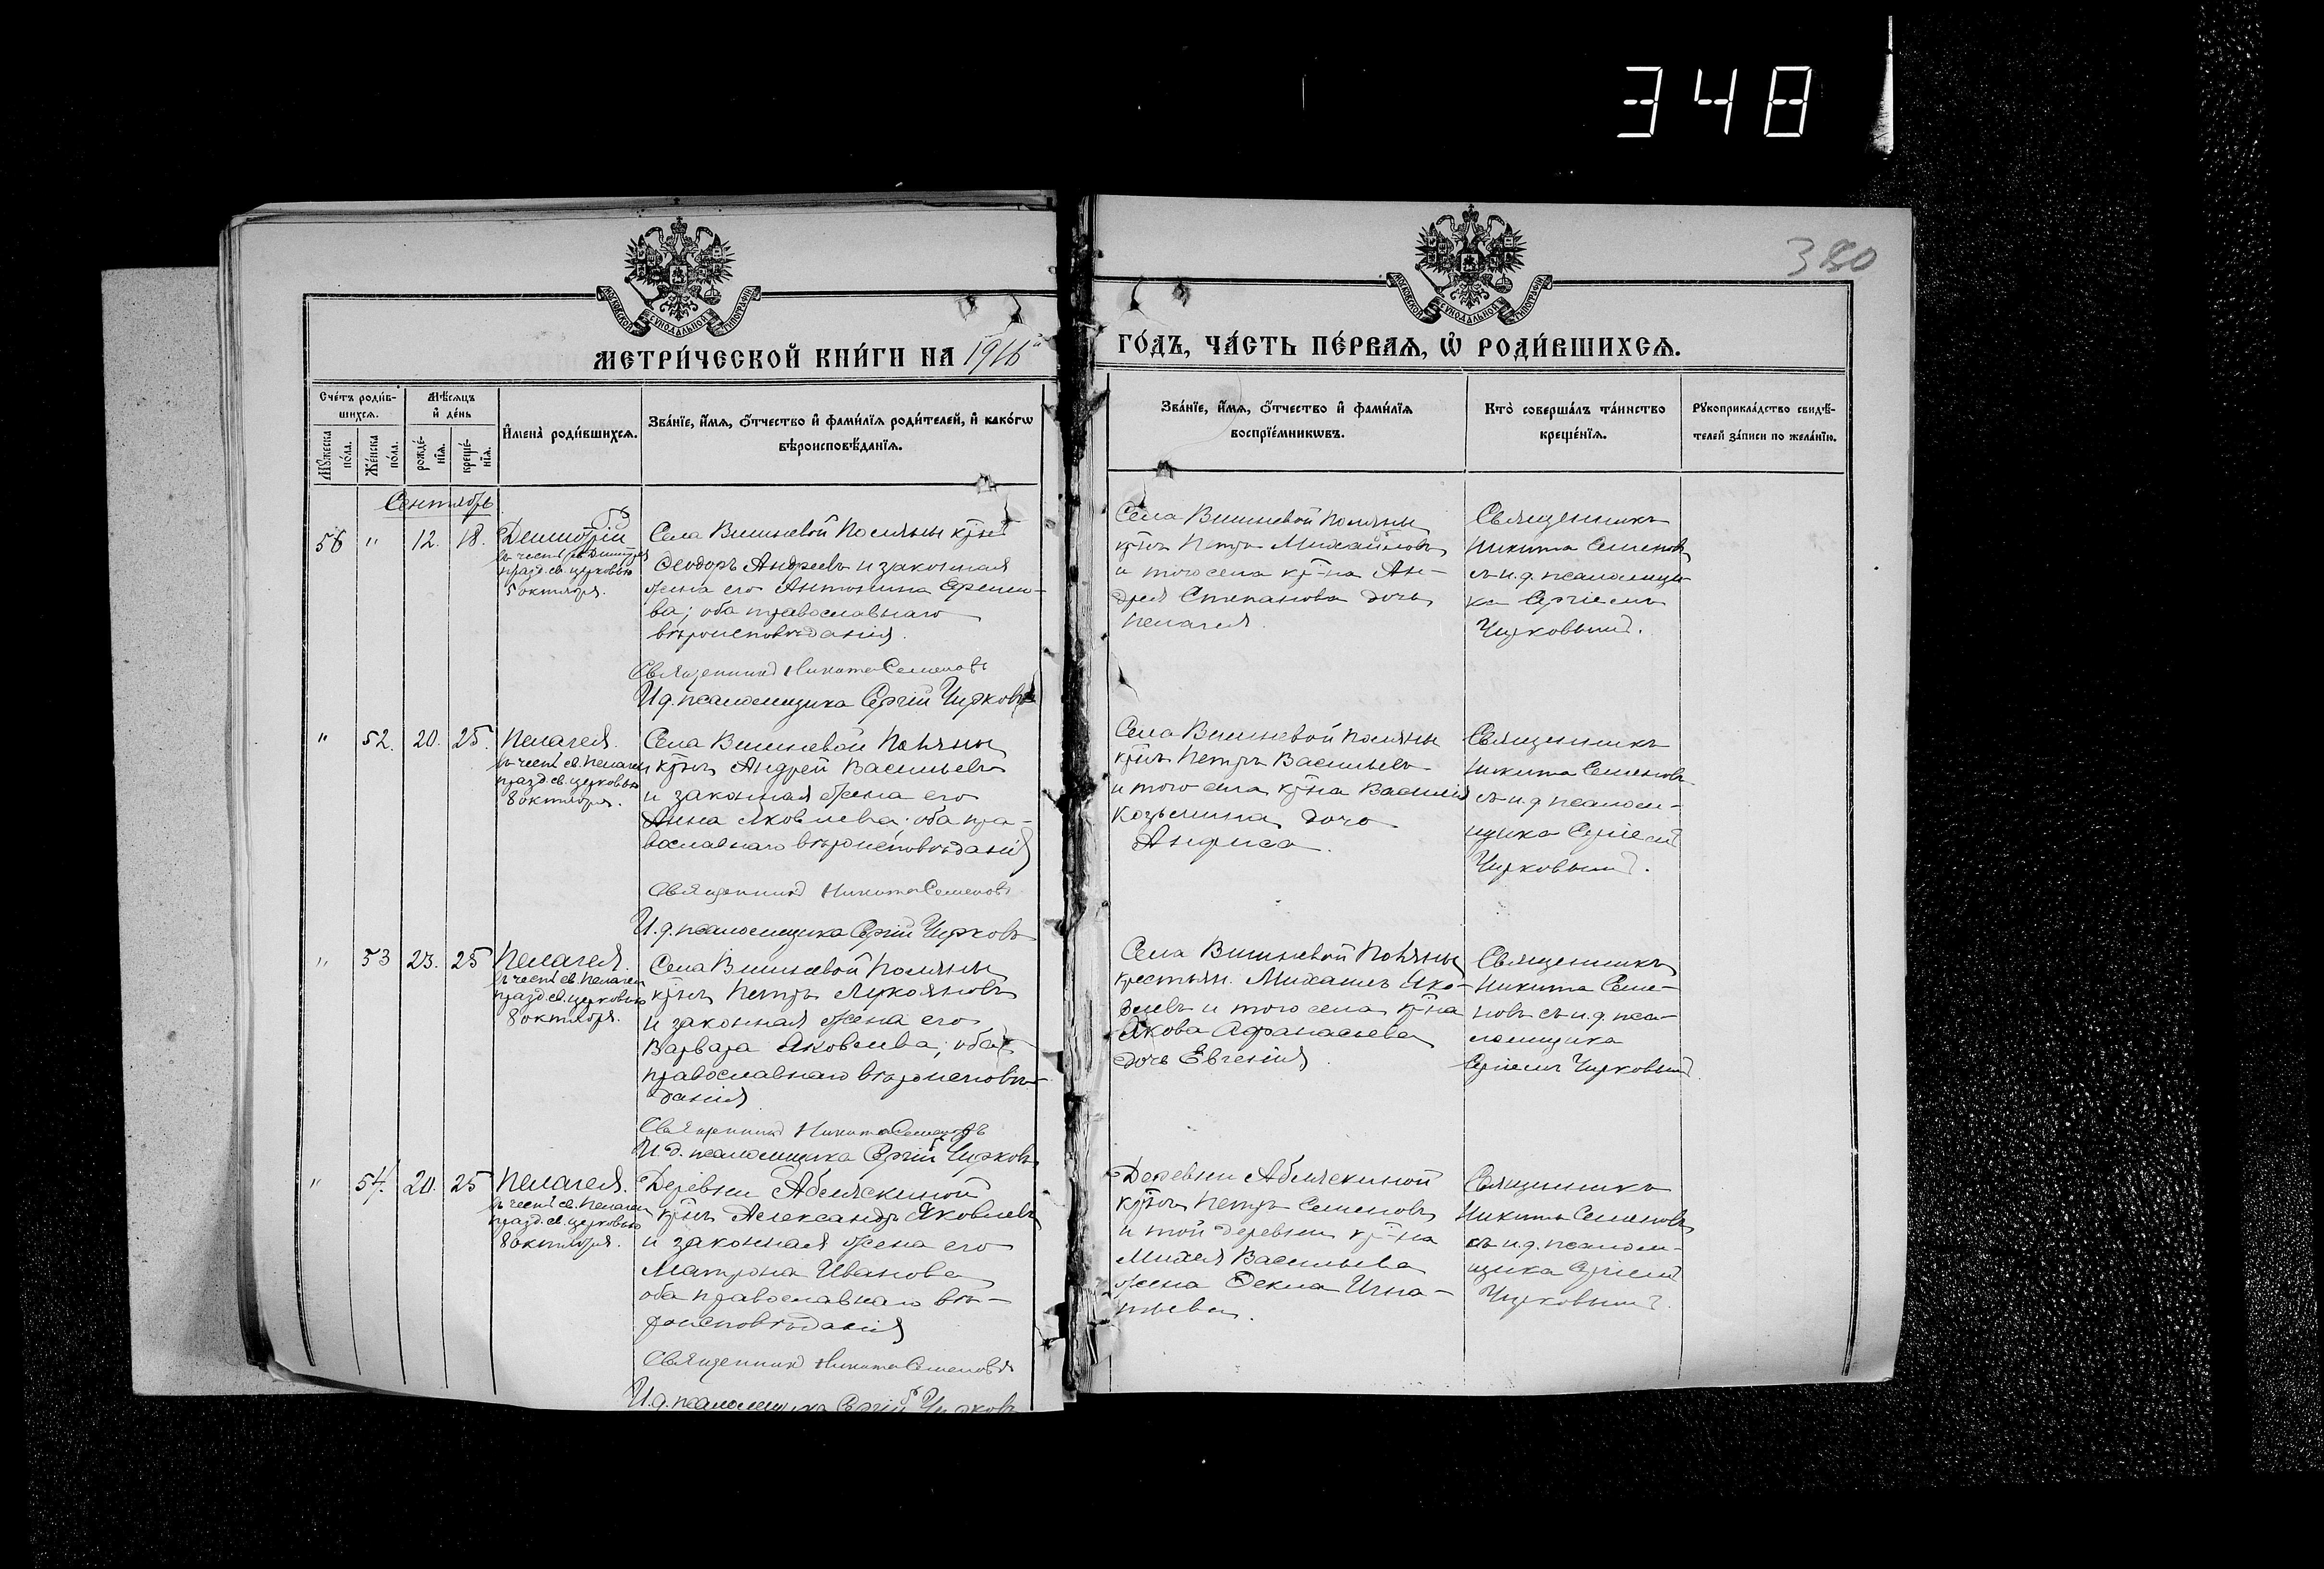 348
380
МОСКОВСКОЙ СѴНОДАЛЬНОЙ ТИПОГРАФІИ
МОСКОВСКОЙ СѴНОДАЛЬНОЙ ТИПОГРАФІИ
МЕТРИ́ЧЕСКОЙ КНИ́ГИ НА 1916й
ГО́ДЪ, ЧА́СТЬ ПЕ́РВАѦ, Ѡ РОДИ́ВШИХСѦ.
Сче́тъ роди́в-
шихсѧ.
Мѣ́сѧцъ
и҆ де́нь
Мꙋ́жеска
по́ла.
Же́нска
по́ла.
рожде́-
нїѧ.
креще́-
нїѧ.
И҆мена̀ роди́вшихсѧ.
Зва́нїе, и҆́мѧ, ѻ҆́тчество и҆ фами́лїѧ роди́телей, и҆ како́гѡ
вѣроисповѣ́данїѧ.
Зва́нїе, и҆́мѧ, ѻ҆́тчество и҆ фами́лїѧ
воспрїе́мникѡвъ.
Кто̀ соверша́лъ та́инство
креще́нїѧ.
Рꙋкоприкла́дство свидѣ́-
телей за́писи по жела́нїю.
Сентябрь
56 " 12. 18.
Димитрій
въ честь св. Димитрія
празд. св. церковью
5 октября.
Села Вишневой Поляны кр-нъ
Ѳеодоръ Андреевъ и законная
жена его Антонина Ефимо-
ва; оба православнаго
вѣроисповѣданія.
Священникъ Никита Семеновъ
И.д. псаломщика Сергій Чирковъ
Села Вишневой Поляны
кр-нъ Петръ Михайловъ
и того села кр-на Ан-
дрея Степанова дочь
Пелагея.
Священникъ
Никита Семеновъ
съ и.д. псаломщи-
ка Сергіемъ
Чирковымъ.
" 52. 20. 25.
Пелагея.
въ честь св. Пелагеи
празд. св. церковью
8 октября.
Села Вишневой Поляны
кр-нъ Андрей Васильевъ
и законная жена его
Анна Яковлева; оба пра-
вославнаго вѣроисповѣданія
Священникъ Никита Семеновъ
И.д. псаломщика Сергій Чирковъ
Села Вишневой Поляны
кр-нъ Петръ Васильевъ
и того села кр-на Василія
Козьмина дочь
Анфиса.
Священникъ
Никита Семеновъ
съ и.д. псалом-
щика Сергіемъ
Чирковымъ.
" 53 23. 25
Пелагея.
въ честь св. Пелагеи
празд. св. церковью
8 октября.
Села Вишневой Поляны
кр-нъ Петръ Лукояновъ
и законная жена его
Варвара Яковлева; оба
православнаго вѣроисповѣ-
данія
Священникъ Никита Семеновъ
И.д. псаломщика Сергій Чирковъ
Села Вишневой Поляны
крестьян. Михаилъ Яко-
влевъ и того села кр-на
Якова Афанасьева
дочь Евгенія.
Священникъ
Никита Семе-
новъ съ и.д. пса-
ломщика
Сергіемъ Чирковымъ.
" 54. 20. 25
Пелагея.
въ честь св. Пелагеи
празд. св. церковью
8 октября.
Деревни Аблязкиной
кр-нъ Александръ Яковлевъ
и законная жена его
Матрона Иванова
оба православнаго вѣ-
роисповѣданія
Священникъ Никита Семеновъ
И.д. псаломщика Сергій Чирковъ
Деревни Аблязкиной
кр-нъ Петръ Семеновъ
и той деревни кр-на
Михея Васильева
жена Ѳекла Игна-
тьева.
Священника
Никита Семеновъ
съ и.д. псалом-
щика Сергіемъ
Чирковымъ.